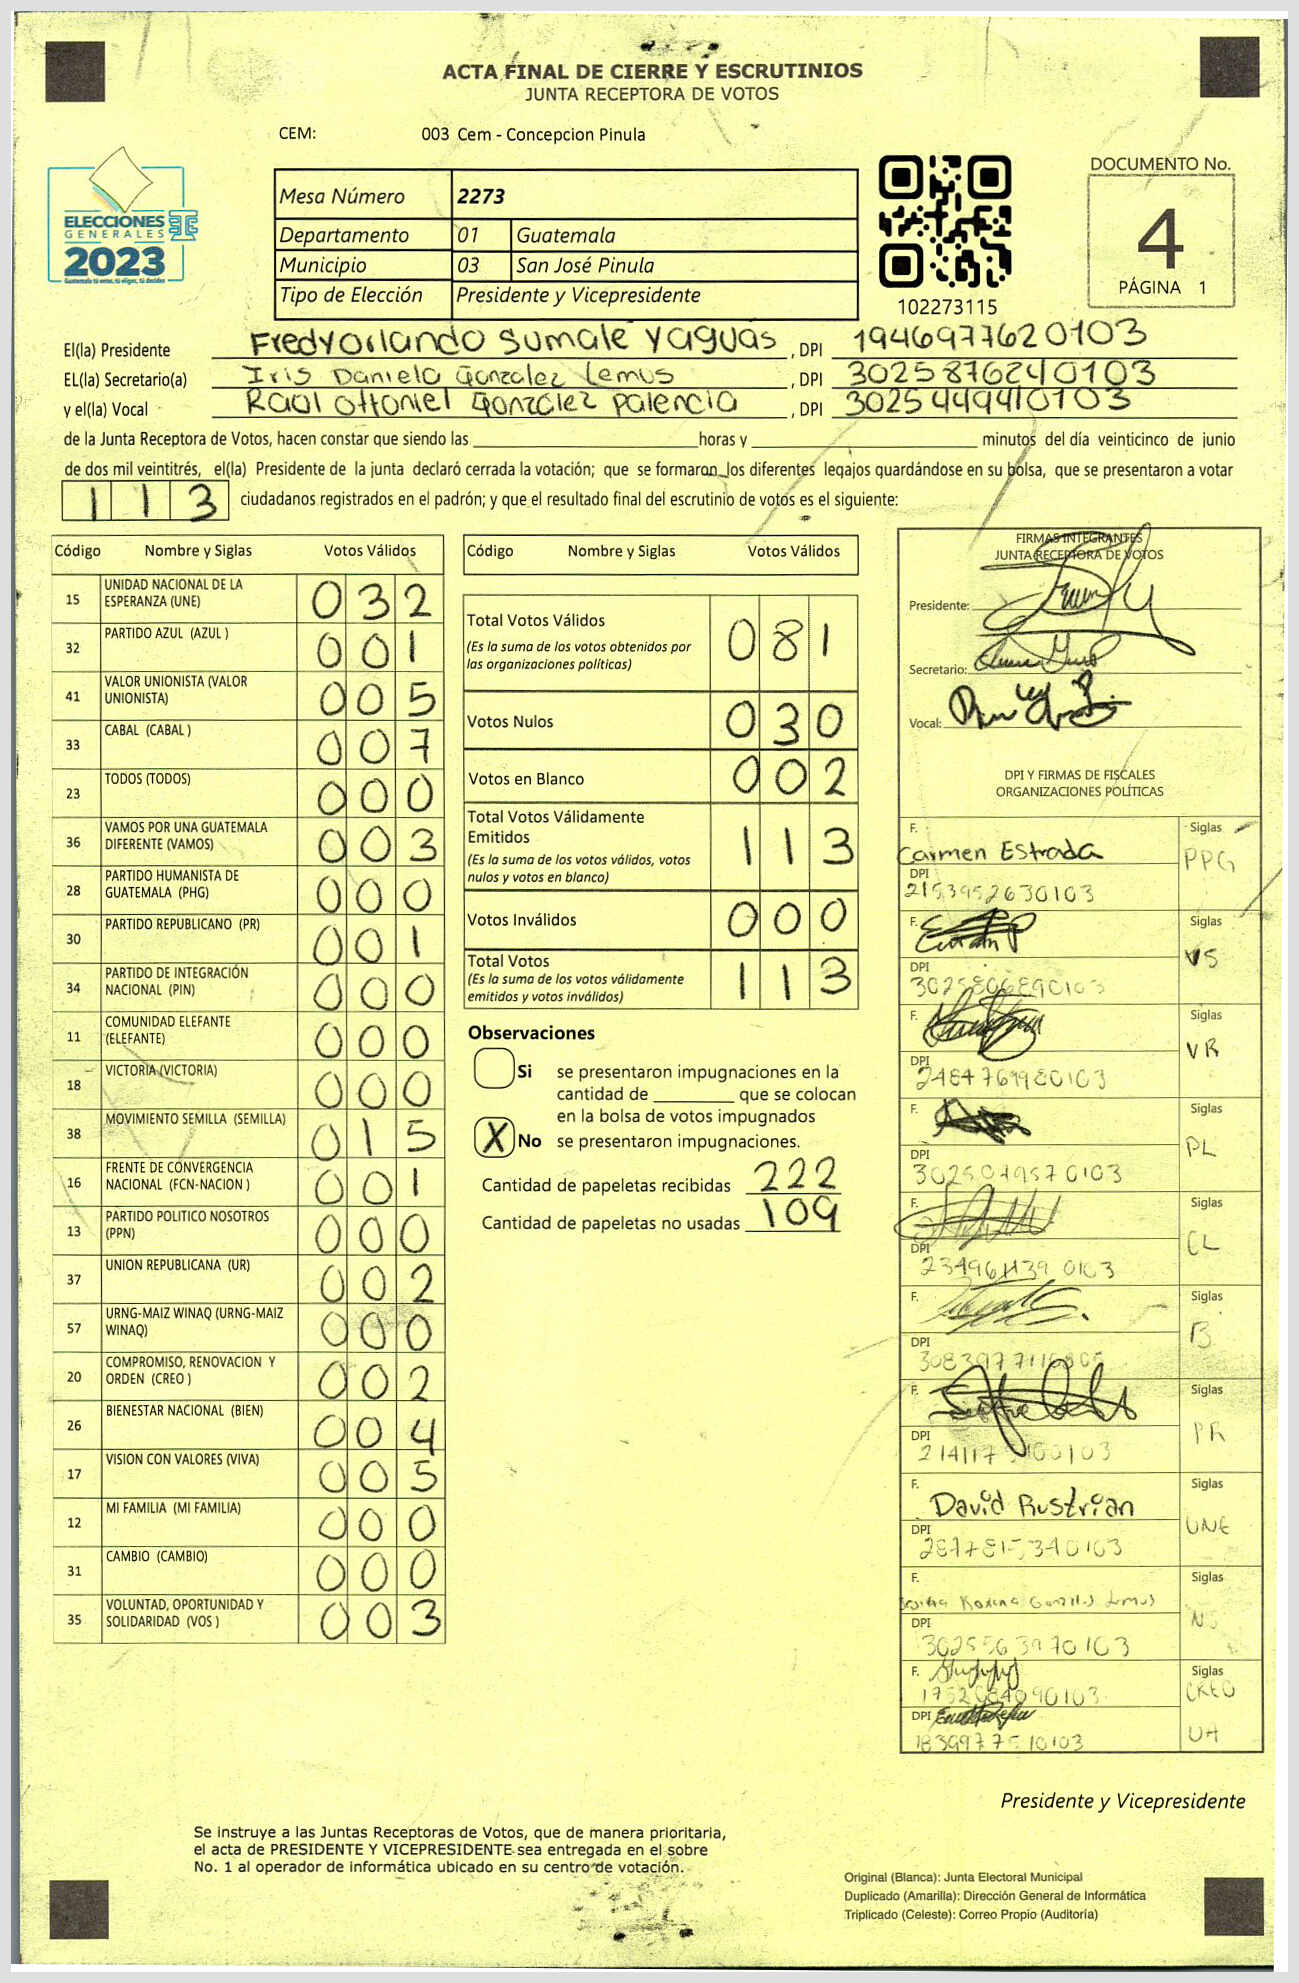 ACTA FINAL DE CIERRE Y ESCRUTINIOS
JUNTA RECEPTORA DE VOTOS
CEM: 003 Cem - Concepcion Pinula
ELECCIONES
GENERALES
2023
Guatemala tú eres, tú eliges, tú decides
Mesa Número 2273
Departamento 01 Guatemala
Municipio 03 San José Pinula
Tipo de Elección Presidente y Vicepresidente
102273115
DOCUMENTO No.
4
PÁGINA 1
El(la) Presidente Fredy Orlando Sumale Yaguas, DPI 1946977620103
EL(la) Secretario(a) Iris Daniela Gonzalez Lemus, DPI 3025876240103
y el(la) Vocal Raul Ottoniel González Palencia, DPI 3025449410103
de la Junta Receptora de Votos, hacen constar que siendo las horas y minutos del día veinticinco de junio
de dos mil veintitrés, el(la) Presidente de la junta declaró cerrada la votación; que se formaron los diferentes legajos guardándose en su bolsa, que se presentaron a votar
113 ciudadanos registrados en el padrón; y que el resultado final del escrutinio de votos es el siguiente:
Código Nombre y Siglas Votos Válidos
15 UNIDAD NACIONAL DE LA ESPERANZA (UNE) 032
32 PARTIDO AZUL (AZUL ) 001
41 VALOR UNIONISTA (VALOR UNIONISTA) 005
33 CABAL (CABAL ) 007
23 TODOS (TODOS) 000
36 VAMOS POR UNA GUATEMALA DIFERENTE (VAMOS) 003
28 PARTIDO HUMANISTA DE GUATEMALA (PHG) 000
30 PARTIDO REPUBLICANO (PR) 001
34 PARTIDO DE INTEGRACIÓN NACIONAL (PIN) 000
11 COMUNIDAD ELEFANTE (ELEFANTE) 000
18 VICTORIA (VICTORIA) 000
38 MOVIMIENTO SEMILLA (SEMILLA) 015
16 FRENTE DE CONVERGENCIA NACIONAL (FCN-NACION ) 001
13 PARTIDO POLITICO NOSOTROS (PPN) 000
37 UNION REPUBLICANA (UR) 002
57 URNG-MAIZ WINAQ (URNG-MAIZ WINAQ) 000
20 COMPROMISO, RENOVACION Y ORDEN (CREO ) 002
26 BIENESTAR NACIONAL (BIEN) 004
17 VISION CON VALORES (VIVA) 005
12 MI FAMILIA (MI FAMILIA) 000
31 CAMBIO (CAMBIO) 000
35 VOLUNTAD, OPORTUNIDAD Y SOLIDARIDAD (VOS ) 003
Código Nombre y Siglas Votos Válidos
Total Votos Válidos 081
(Es la suma de los votos obtenidos por
las organizaciones políticas)
Votos Nulos 030
Votos en Blanco 002
Total Votos Válidamente
Emitidos 113
(Es la suma de los votos válidos, votos
nulos y votos en blanco)
Votos Inválidos 000
Total Votos 113
(Es la suma de los votos válidamente
emitidos y votos inválidos)
Observaciones
Si se presentaron impugnaciones en la
cantidad de que se colocan
en la bolsa de votos impugnados
X No se presentaron impugnaciones.
Cantidad de papeletas recibidas 222
Cantidad de papeletas no usadas 109
FIRMAS INTEGRANTES
JUNTA RECEPTORA DE VOTOS
Presidente:
Secretario:
Vocal:
DPI Y FIRMAS DE FISCALES
ORGANIZACIONES POLÍTICAS
F. Carmen Estrada Siglas PPG
DPI 2153952630103
F. Siglas VS
DPI 3025806890103
F. Siglas VR
DPI 2484769980103
F. Siglas PL
DPI 3025049570103
F. Siglas CL
DPI
F. Siglas B
DPI
F. Siglas PR
DPI
F. David Rustrian Siglas UNE
DPI
F. Siglas
DPI 3025563970103
F. Siglas CREO
DPI
Presidente y Vicepresidente
Se instruye a las Juntas Receptoras de Votos, que de manera prioritaria,
el acta de PRESIDENTE Y VICEPRESIDENTE sea entregada en el sobre
No. 1 al operador de informática ubicado en su centro de votación.
Original (Blanca): Junta Electoral Municipal
Duplicado (Amarilla): Dirección General de Informática
Triplicado (Celeste): Correo Propio (Auditoría)